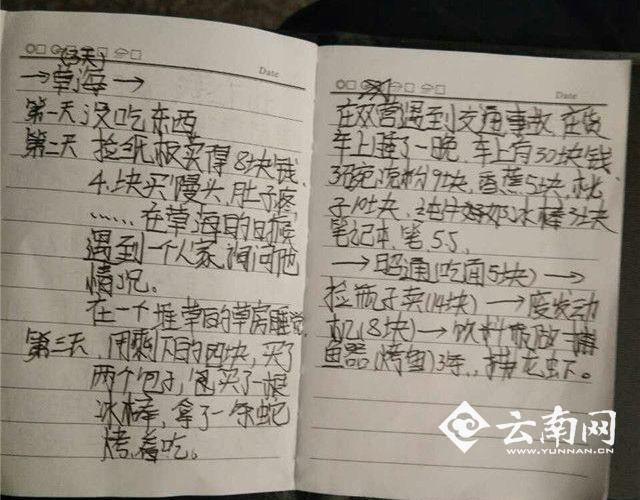 (3天)
Date
→草海→
第一天没吃东西
第二天 捡纸板卖得8块钱,
4块买馒头,肚子疼,
……在草海的时候
遇到一个人家询问他
情况。
在一个堆草的草房睡觉
第三天,用剩下的四块,买了
两个包子,包买了一根
冰棒,拿了一条蛇
烤着吃。
Date
在双营遇到交通事故,在货
车上睡了一晚,车上有30块钱
3碗凉粉9块,香蕉5块,桃
子10块,冰棒3块
笔记本,笔,5.5,
→昭通(吃面5块)→
捡瓶子卖(14块)→废发动
机(8块)→饮料瓶做一捕
鱼器(烤鱼)3条,龙虾。
云南网
WWW.YUNNAN.CN